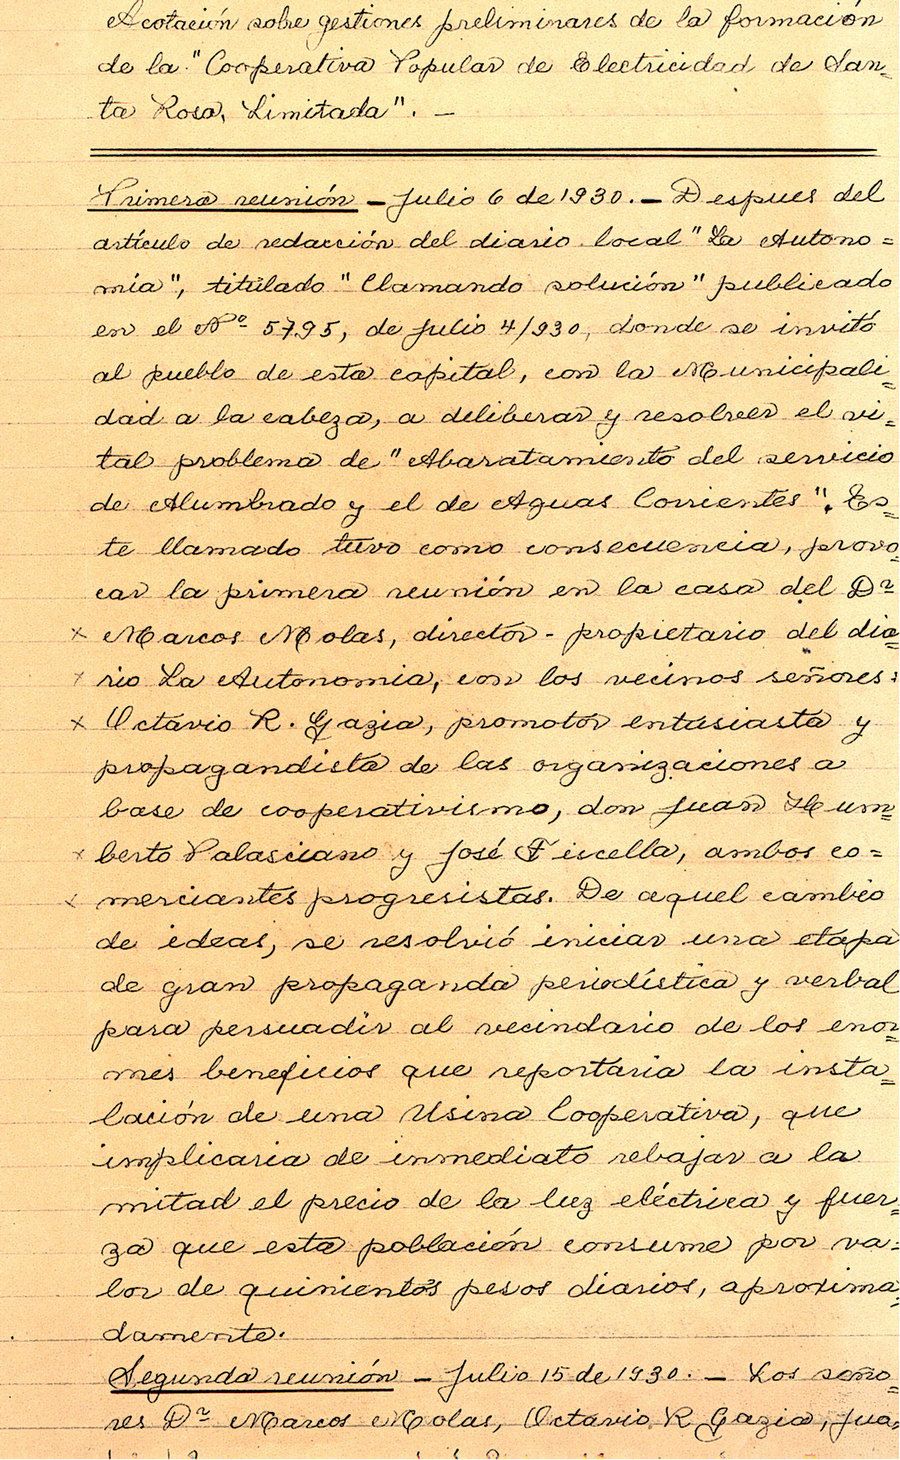 Acotación sobre gestiones preliminares de la formación
de la "Cooperativa Popular de Electricidad de San-
ta Rosa, Limitada". —
Primera reunión — Julio 6 de 1930. — Despues del
artículo de redacción del diario local "La Autono=
mía", titulado "Clamando solución" publicado
en el Nº 5795, de julio 4/930, donde se invitó
al pueblo de esta capital, con la Municipali=
dad a la cabeza, a deliberar y resolver el vi=
tal problema de "Abaratamiento del servicio
de Alumbrado y el de Aguas Corrientes". Es=
te llamado tuvo como consecuencia, provo=
car la primera reunión en la casa del Dr
x Marcos Molas, director - propietario del dia=
x rio La Autonomia, con los vecinos señores:
x Octavio R. Gazia, promotor entusiasta y
propagandista de las organizaciones a
base de cooperativismo, don Juan Hum=
x berto Palasciano y José Fiscella, ambos co=
x merciantes progresistas. De aquel cambio
de ideas, se resolvió iniciar una etapa
de gran propaganda periodística y verbal
para persuadir al vecindario de los enor=
mes beneficios que reportaria la insta=
lación de una Usina Cooperativa, que
implicaria de inmediato rebajar a la
mitad el precio de la luz eléctrica y fuer=
za que esta población consume por va=
lor de quinientos pesos diarios, aproxima=
damente.
Segunda reunión — Julio 15 de 1930. — Los seño=
res Dr Marcos Molas, Octavio R Gazia, Jua=